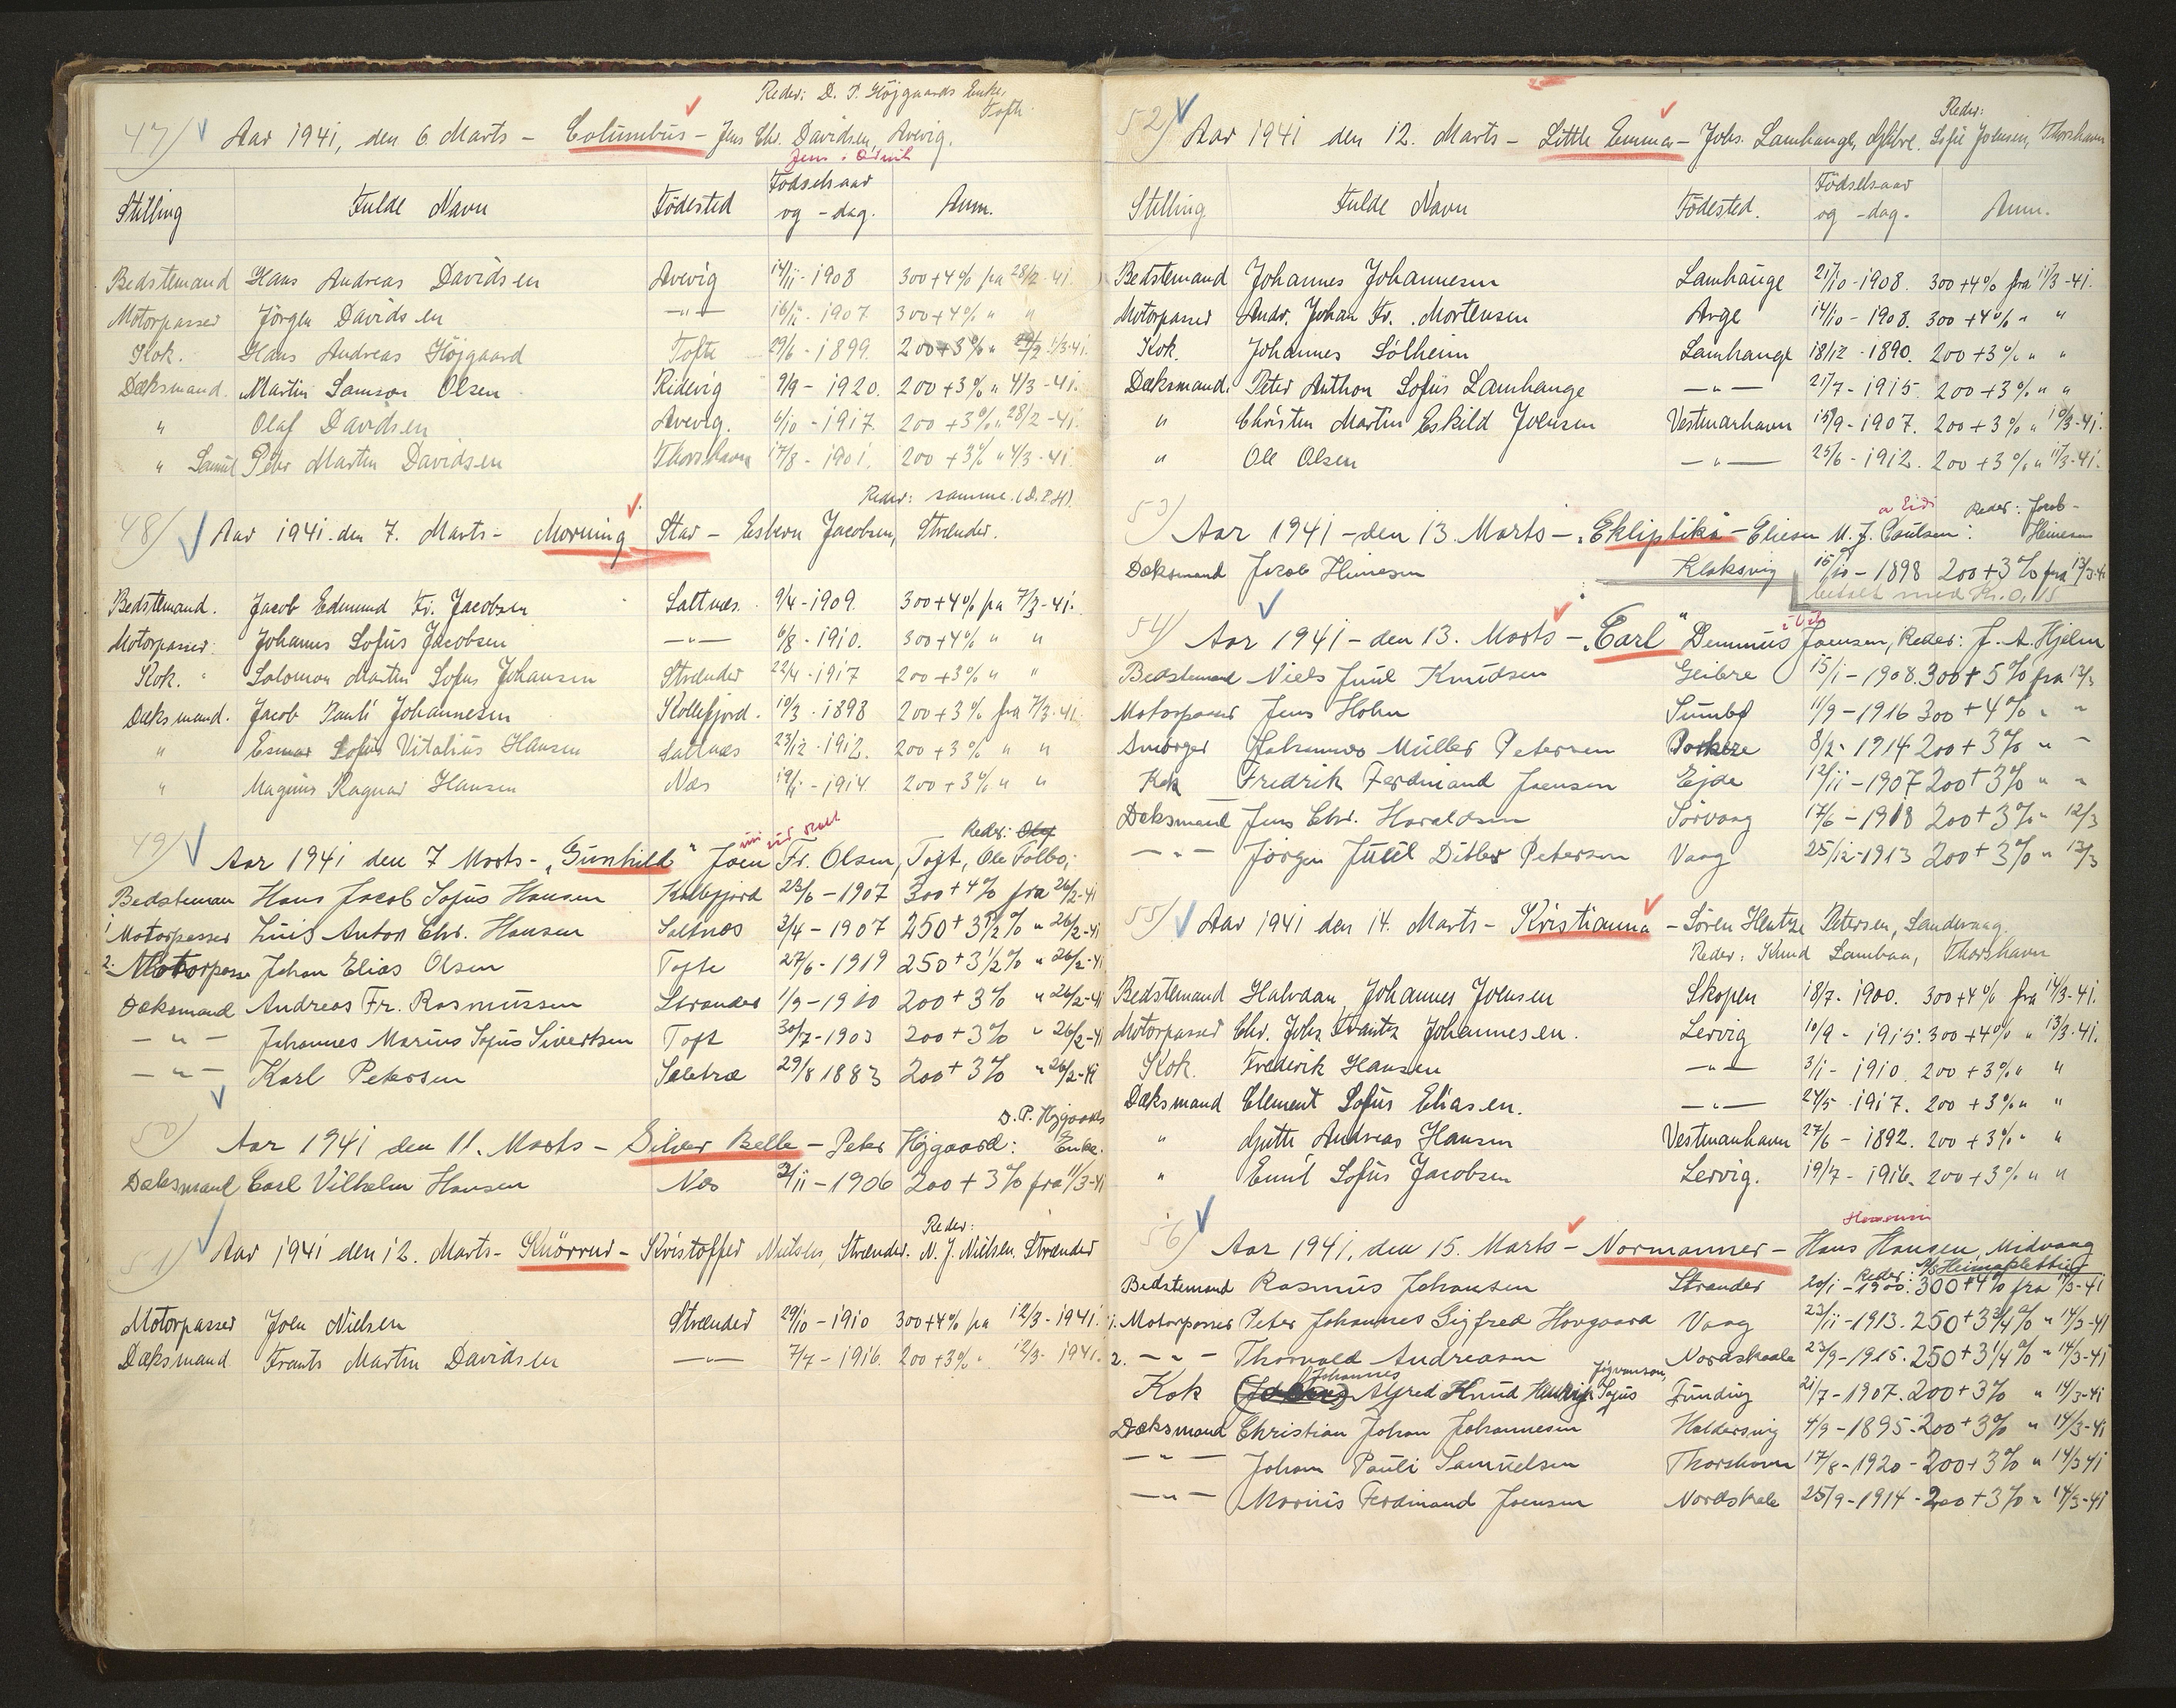 Reder: D. P. Höjgaards Enke,
Tofte
47) Aar 1941, den 6. Marts - Columbus - Jens Chr. Davidsen, Avevig.
Stilling Fulde Navn Födested Födselsaar og -dag. Anm.
Bedstemand Hans Andreas Davidsen Avevig 14/11-1908 300+4% fra 28/2-41.
Motorpasser Jörgen Davidsen -"- 16/11-1907 300+4% " "
Kok. Hans Andreas Höjgaard Tofte 29/6-1899. 200+3% " 4/3-41.
Dæksmand. Martin Samson Olsen Ridevig 9/9-1920. 200+3% " 4/3-41.
" Olaf Davidsen Avevig. 6/10-1917. 200+3% " 28/2-41.
" Samuel Peter Martin Davidsen Thorshavn 17/8-1901. 200+3% " 4/3-41.
Reder: samme. (D.P.H)
48) Aar 1941. den 7. Marts - Morning Star - Esbern Jacobsen, Strænder.
Bedstemand. Jacob Edmund Fr. Jacobsen Saltnæs. 9/4-1909. 300+4% fra 7/3-41.
Motorpasser. Johannes Sofus Jacobsen -"- 6/8-1910. 300+4% " "
Kok. Solomon Martin Sofus Johansen Strænder 22/4-1917 200+3% " "
Dæksmand. Jacob Pauli Johannesen Kollefjord. 10/3-1898 200+3% fra 7/3-41.
" Esmar Sofus Vitalius Hansen Saltnæs 23/12-1912. 200+3% " "
" Magnus Ragnar Hansen Næs 19/11-1914. 200+3% " "
Reder: Olaf
49) Aar 1941 den 7 Marts - "Gunhild" Joen Fr. Olsen, Toft, Ole Folbo;
Bedsteman Hans Jacob Sofus Hansen Kollefjord 23/6-1907 300+4% fra 26/2-41
1. Motorpasser Luis Anton Chr. Hansen Saltnæs 3/4-1907 250+3½% " 26/2-41
2. Motorpasse Johan Elias Olsen Tofte 27/6-1919 250+3½% " 26/2-41
Dæksmand Andreas Fr. Rasmussen Strander 1/9-1910 200+3% " 26/2-41
-"- Johannes Marius Sofus Sivertsen Toft 30/7-1903 200+3% " 26/2-41
-"- Karl Petersen Seletræ 29/8 1883 200+3% " 26/2-41
D. P. Højgaards
50) Aar 1941 den 11. Marts - Silver Belle - Peter Højgaard: Enke.
Dæksmand Carl Vilhelm Hansen Næs 3/11-1906 200+3% fra 11/3-41
Reder:
51) Aar 1941 den 12. Marts - Knörrur - Kristoffer Nielsen, Strænder. N. J. Nielsen, Strænder
Motorpasser Joen Nielsen Strænder 29/10-1910 300+4% fra 12/3-1941.
Dæksmand Frants Martin Davidsen -"- 7/7-1916. 200+3% " 12/3-1941.
Reder:
52) Aar 1941 den 12. Marts - Little Emma - Johs. Lamhauge, Glibre. Sofie Joensen, Thorshavn
Stilling Fulde Navn Födested. Födselsaar og -dag. Anm.
Bedstemand Johannes Johannesen Lamhauge 21/10-1908. 300+4% fra 11/3-41.
Motorpasser Andr. Johan Fr. Mortensen Arge 14/10-1908. 300+4% " "
Kok. Johannes Sólheim Lamhauge 18/12-1890. 200+3% " "
Dæksmand. Peter Anthon Sofus Lamhauge -"- 21/7-1915. 200+3% " "
" Christen Martin Eskild Joensen Vestmanhavn 15/9-1907. 200+3% " 10/3-41.
" Ole Olsen -"- 25/6-1912. 200+3% " 11/3-41.
a Eidi Reder: Jacob
53) Aar 1941 - den 13. Marts - "Ekliptika" - Eliesen M. J. Poulsen: Heinesen
Dæksmand Jacob Heinesen Klaksvig 15/10-1898 200+3% fra 13/3-41
betalt med Kr. 0,15
54) Aar 1941 - den 13. Marts - "Carl" Demmus Joensen, Reder: J. A. Hjelm
Bedstemand Niels Juul Knudsen Geibre 15/1-1908. 300+5% fra 12/3
Motorpasser Jens Holm Sumbø 11/9-1916 300+4% " "
Smörger Johannes Müller Petersen Porkere 8/2-1914 200+3% " "
Kok Fredrik Ferdinand Joensen Ejde 12/11-1907 200+3% " "
Dæksmand Jens Chr. Haraldsen Sörvaag 17/6-1918 200+3% " 12/3
-"- Jörgen Juul Ditlev Petersen Vaag 25/12-1913 200+3% " 12/3
55) Aar 1941 den 14. Marts - Kristianna - Sören Hentze Petersen, Sandevaag.
Reder: Knud Lambaa, Thorshavn
Bedstemand Halvdan Johannes Joensen Skopen 18/7-1900. 300+4% fra 14/3-41.
Motorpasser Chr. Johs. Frants Johannesen. Lervig 10/9-1915. 300+4% " 13/3-41.
Kok. Frederik Hansen -"- 3/1-1910. 200+3% " "
Dæksmand Clement Sofus Eliasen. -"- 24/5-1917. 200+3% " "
" Gutti Andreas Hansen Vestmanhavn 27/6-1892. 200+3% " "
" Emil Sofus Jacobsen Lervig. 19/7-1916. 200+3% " "
56) Aar 1941, den 15. Marts - Normanner - Hans Hansen, Midvaag
Reder:
Bedstemand Rasmus Johansen Strander 20/1-1900. 300+4% fra 14/3-41
1. Motorpasser Peter Johannes Sigfred Hovgaard Vaag 23/11-1913. 250+3¾% " 14/3-41
2. -"- Thorvald Andreasen Nordskaale 23/9-1915. 250+3¼% " 14/3-41
Johannes Jógvanson,
Kok Alfred Knud Hendrik Sofus Funding 21/7-1907. 200+3% " 14/3-41
Dæksmand Christian Johan Johannesen Haldersvig 4/9-1895. 200+3% " 14/3-41
-"- Johan Pauli Samuelsen Thorshavn 17/8-1920 - 200+3% " 14/3 41
-"- Marius Ferdinand Joensen Nordskale 25/9-1914 - 200+3% " 14/3-41